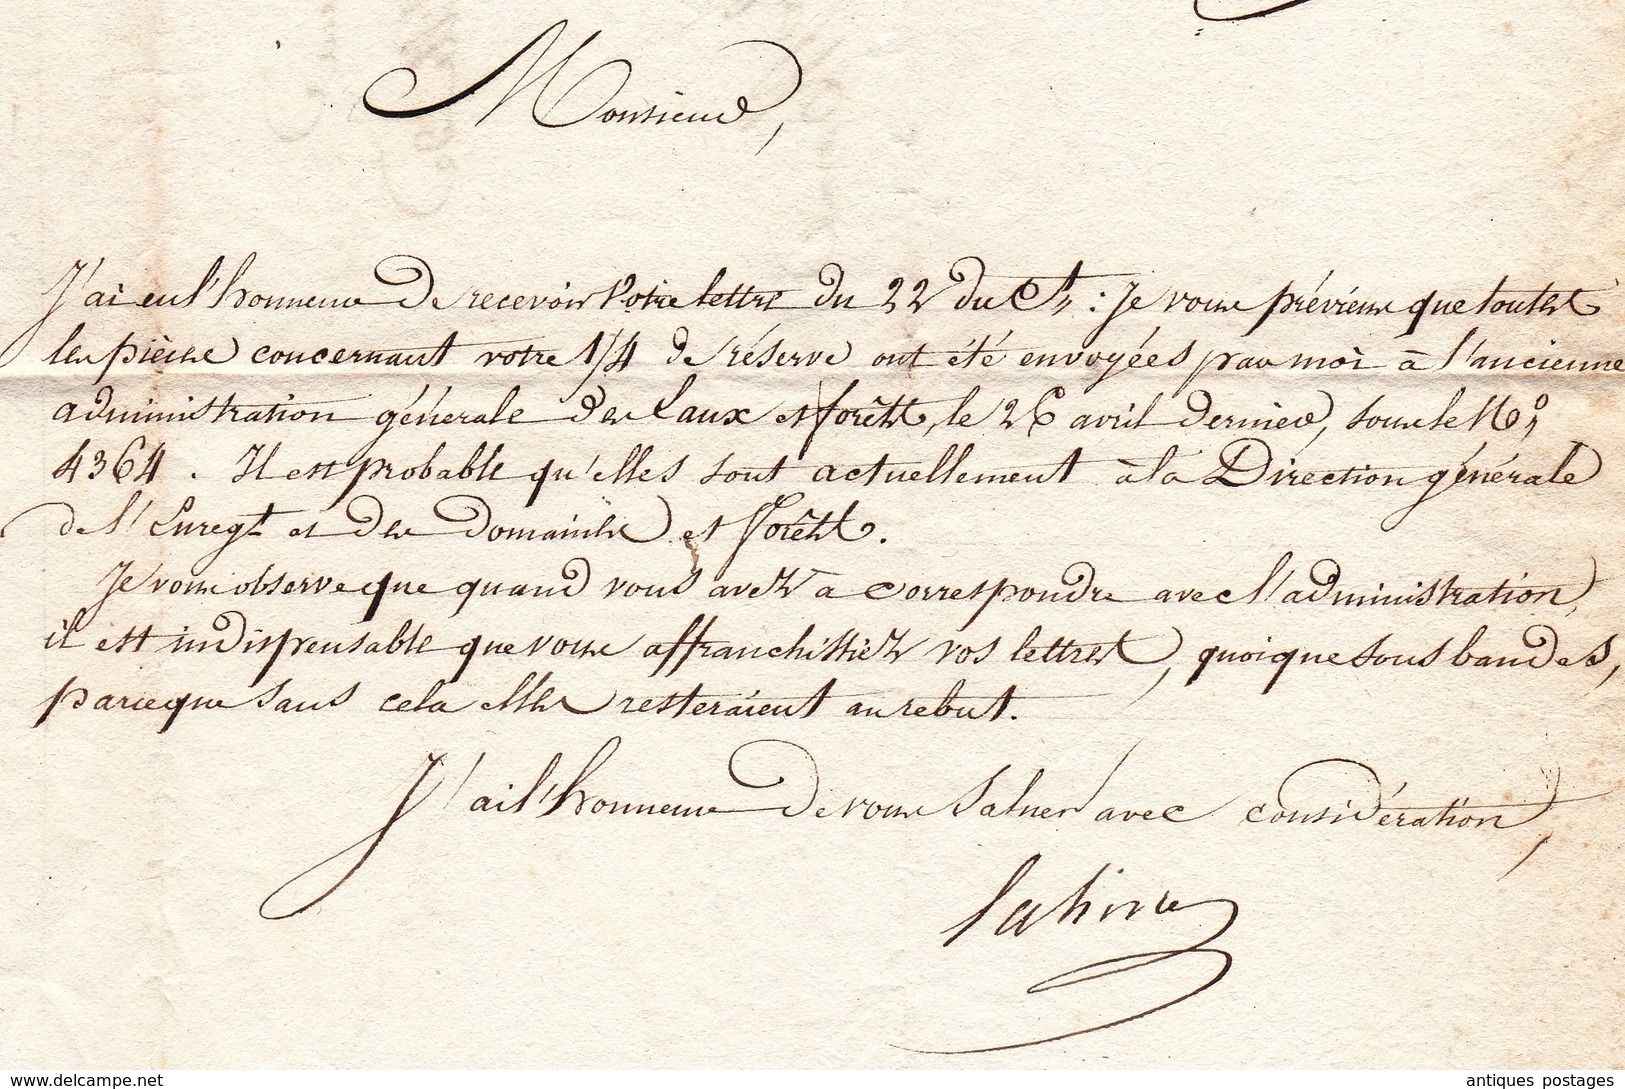 Monsieur,
J'ai eu l'honneur de recevoir votre lettre du 22 du Ct, : Je vous préviens que toutes
les pièces concernant votre 1/4 de réserve ont été envoyées par moi à l'ancienne
administration générale des Eaux et forêts, le 26 avril dernier, sous le No,
4364. Il est probable qu'elles sont actuellement à la Direction générale
de l'Enregt et des Domaines et forêts.
Je vous observe que quand vous avez à correspondre avec l'administration,
il est indispensable que vous affranchissiez vos lettres, quoique sous bandes,
parceque sans cela elles resteraient au rebut.
J'ai l'honneur de vous saluer avec considération,
delcampe.net
antiques postages